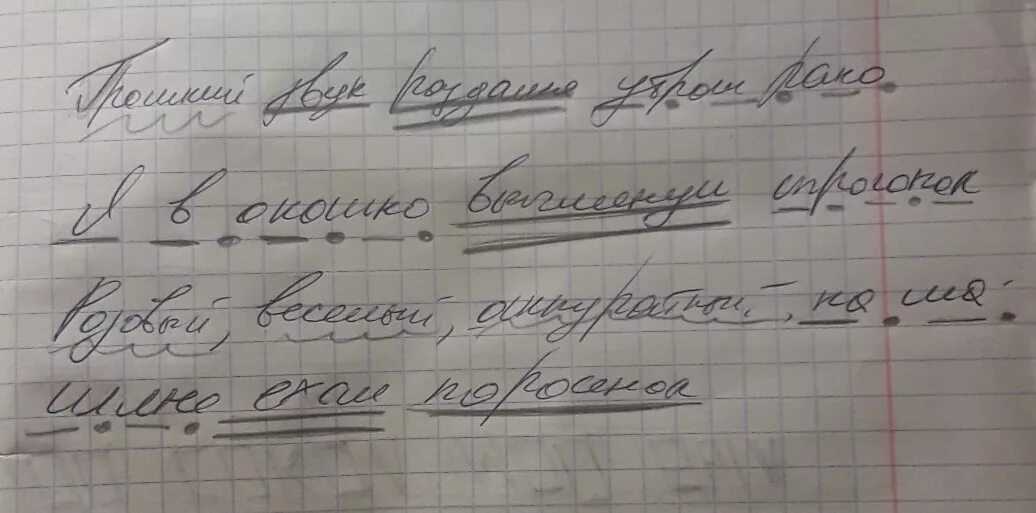 Громкий звук раздался утром рано.
Я в окошко выглянул спросонок
Розовый, веселый, аккуратный, на ма-
шине ехал поросенок